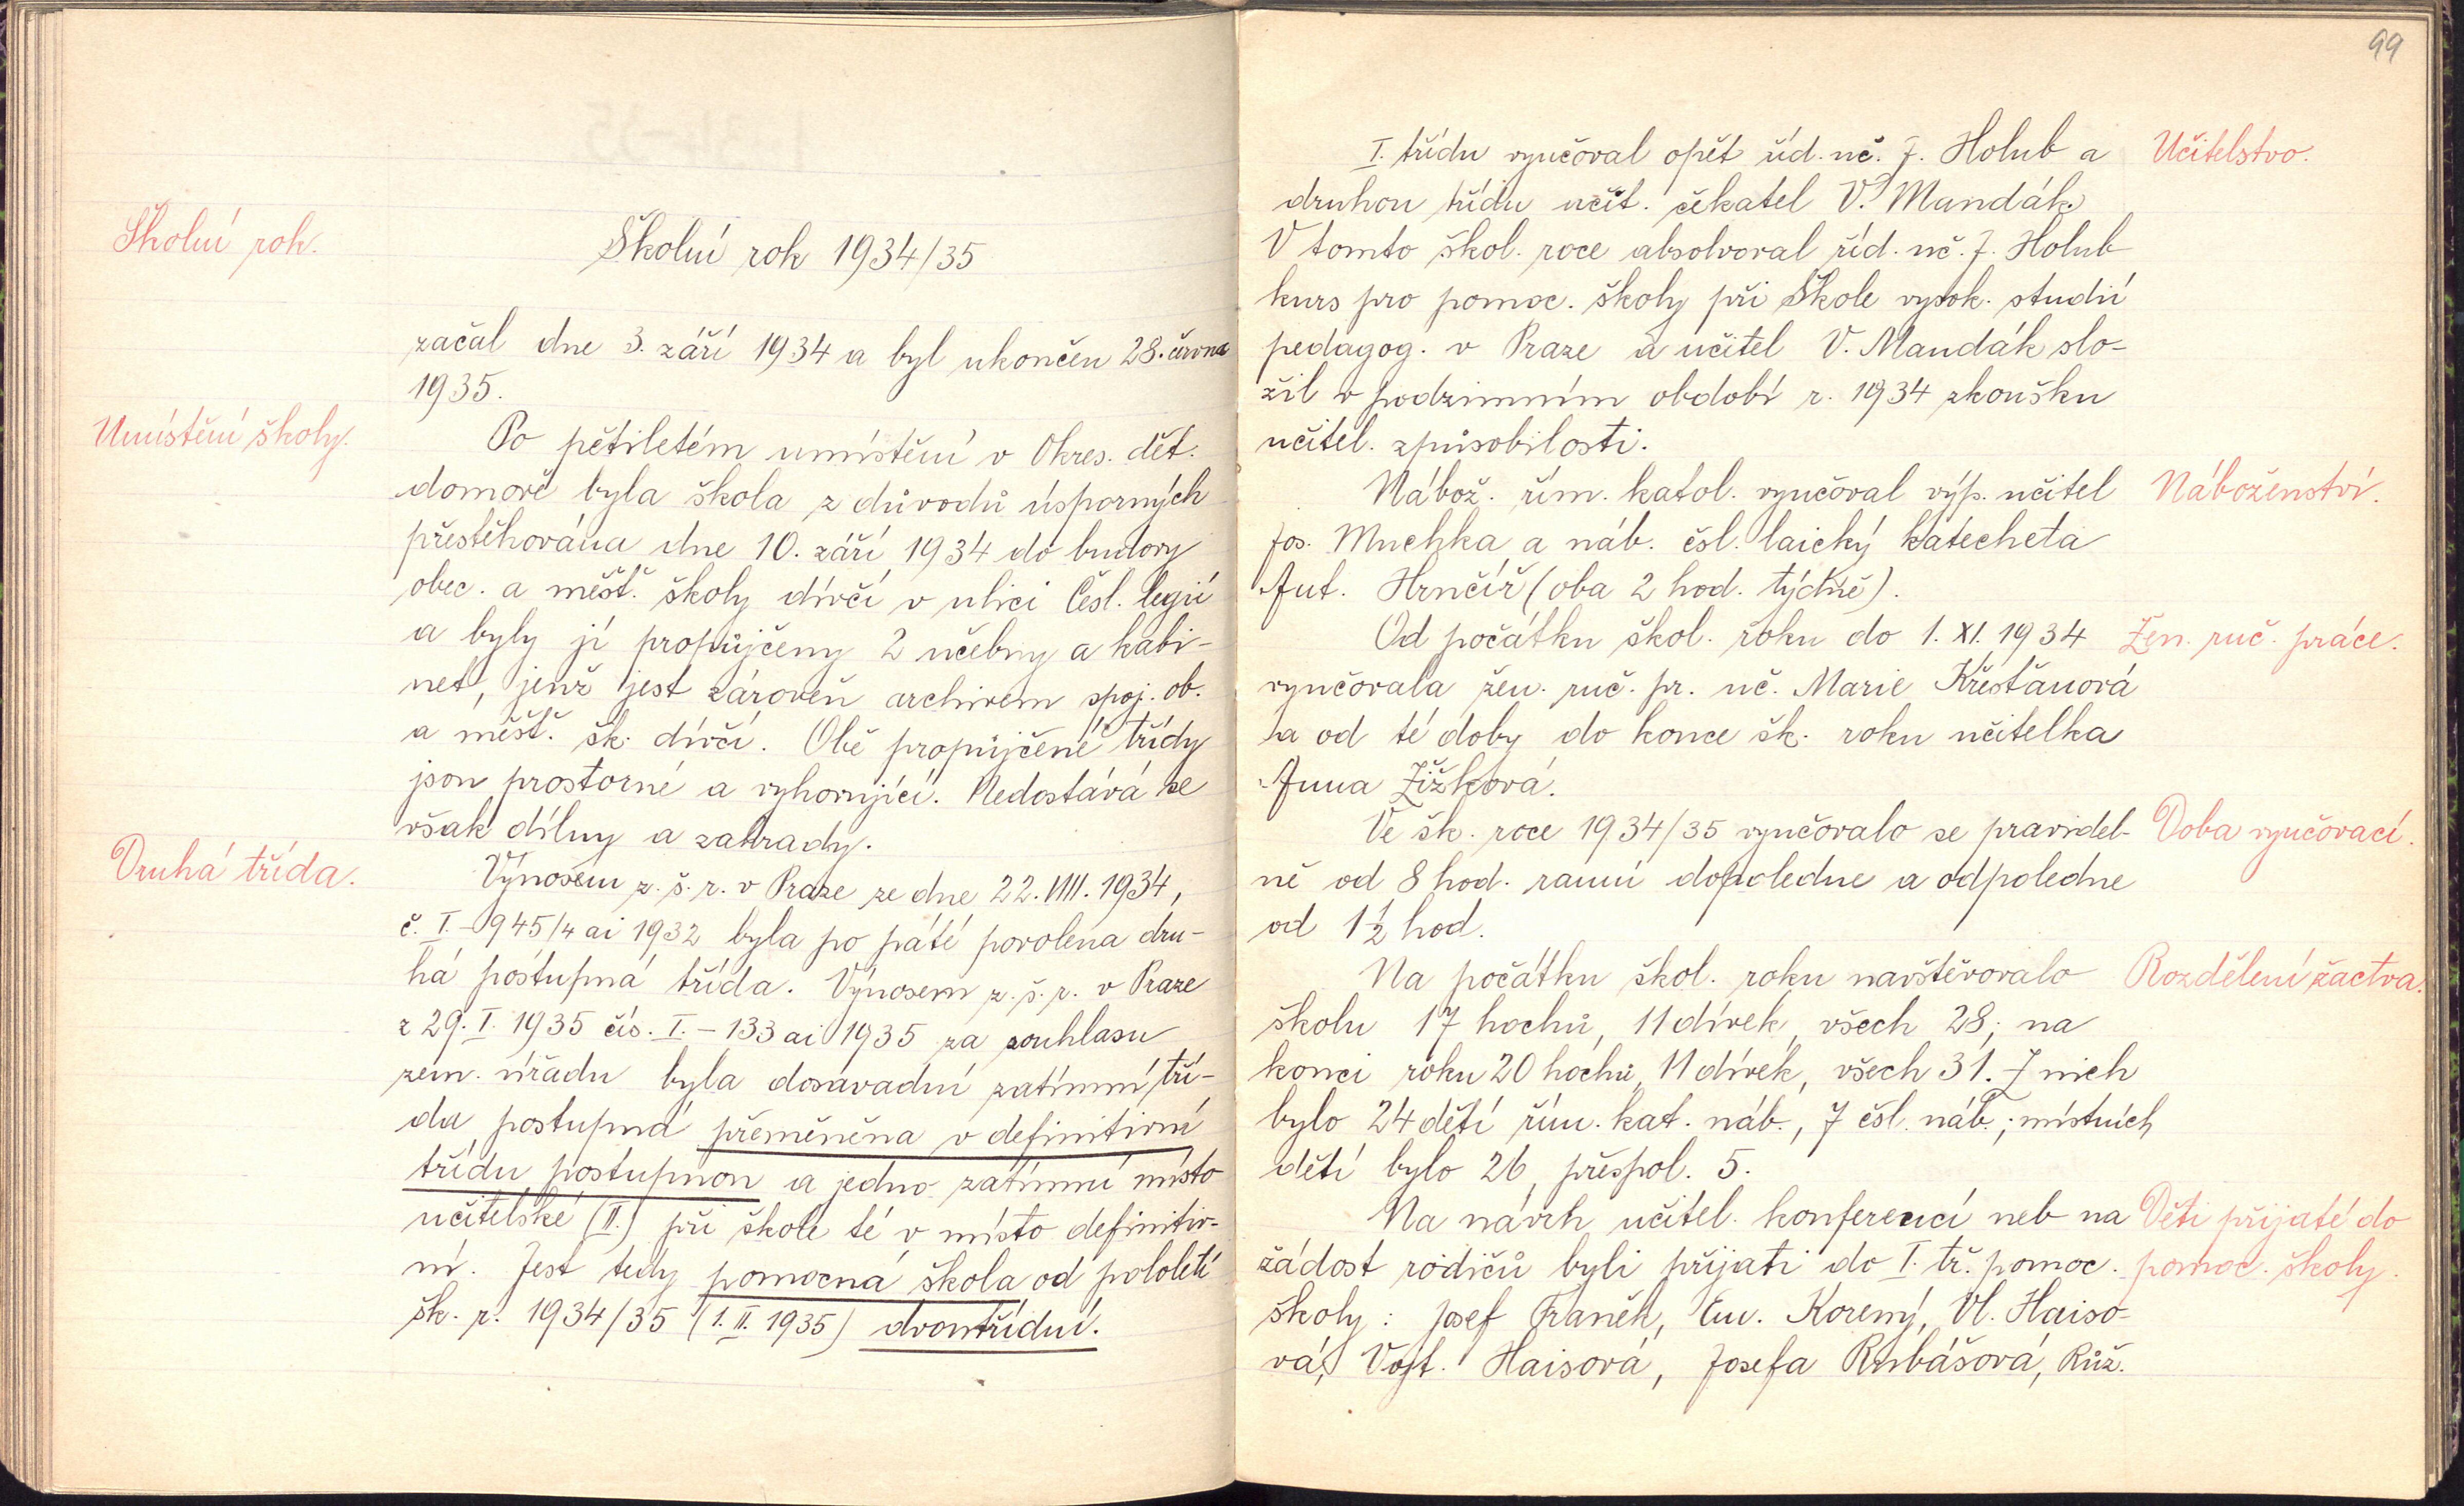 Školní rok.
Školní rok 1934/35
začal dne 3. září 1934 a byl ukončen 28. června
1935.
Umístění školy.
Po pětiletém umístění v Okres. dět.
domově byla škola z důvodů úsporných
přestěhována dne 10. září 1934 do budovy
obec. a měšť. školy dívčí v ulici Čsl. legií
a byly jí propůjčeny 2 učebny a kabi-
net, jenž jest zároveň archivem spoj. ob.
a měšť. šk. dívčí. Obě propůjčené třídy
jsou prostorné a vyhovující. Nedostává se
však dílny a zahrady.
Druhá třída.
Výnosem z. š. r. v Praze ze dne 22. VIII. 1934,
č. I. - 945/4 ai 1932 byla po páté povolena dru-
há postupná třída. Výnosem z. š. r. v Praze
z 29. I. 1935 čís. I. - 133 ai 1935 za souhlasu
zem. úřadu byla dosavadní zatímní tří-
da postupná přeměněna v definitivní
třídu postupnou a jedno zatímní místo
učitelské (II.) při škole té v místo definitiv-
ní. Jest tedy pomocná škola od pololetí
šk. r. 1934/35 (1. II. 1935) dvoutřídní.
99
I. třídu vyučoval opět říd. uč. J. Holub a
Učitelstvo.
druhou třídu učit. čekatel V. Mandák.
V tomto škol. roce absolvoval říd. uč. J. Holub
kurs pro pomoc. školy při Škole vysok. studií
pedagog. v Praze a učitel V. Mandák slo-
žil v podzimním období r. 1934 zkoušku
učitel. způsobilosti.
Nábož. řím. katol. vyučoval výp. učitel
Náboženství.
Jos. Muchka a náb. čsl. laický katecheta
Ant. Hrnčíř (oba 2 hod. týdně).
Od počátku škol. roku do 1. XI. 1934
Žen. ruč. práce.
vyučovala žen. ruč. pr. uč. Marie Křesťanová
a od té doby do konce šk. roku učitelka
Anna Žižková.
Ve šk. roce 1934/35 vyučovalo se pravidel-
Doba vyučovací.
ně od 8 hod. ranní dopoledne a odpoledne
od 1½ hod.
Na počátku škol. roku navštěvovalo
Rozdělení žactva.
školu 17 hochů, 11 dívek, všech 28; na
konci roku 20 hochů, 11 dívek, všech 31. Z nich
bylo 24 dětí řím. kat. náb., 7 čsl. náb.; místních
dětí bylo 26, přespol. 5.
Na návrh učitel. konferencí neb na
Děti přijaté do
žádost rodičů byli přijati do I. tř. pomoc.
pomoc. školy.
školy: Josef Franěk, Em. Korený, Vl. Haiso-
vá, Vojt. Haisová, Josefa Rubášová, Růž.